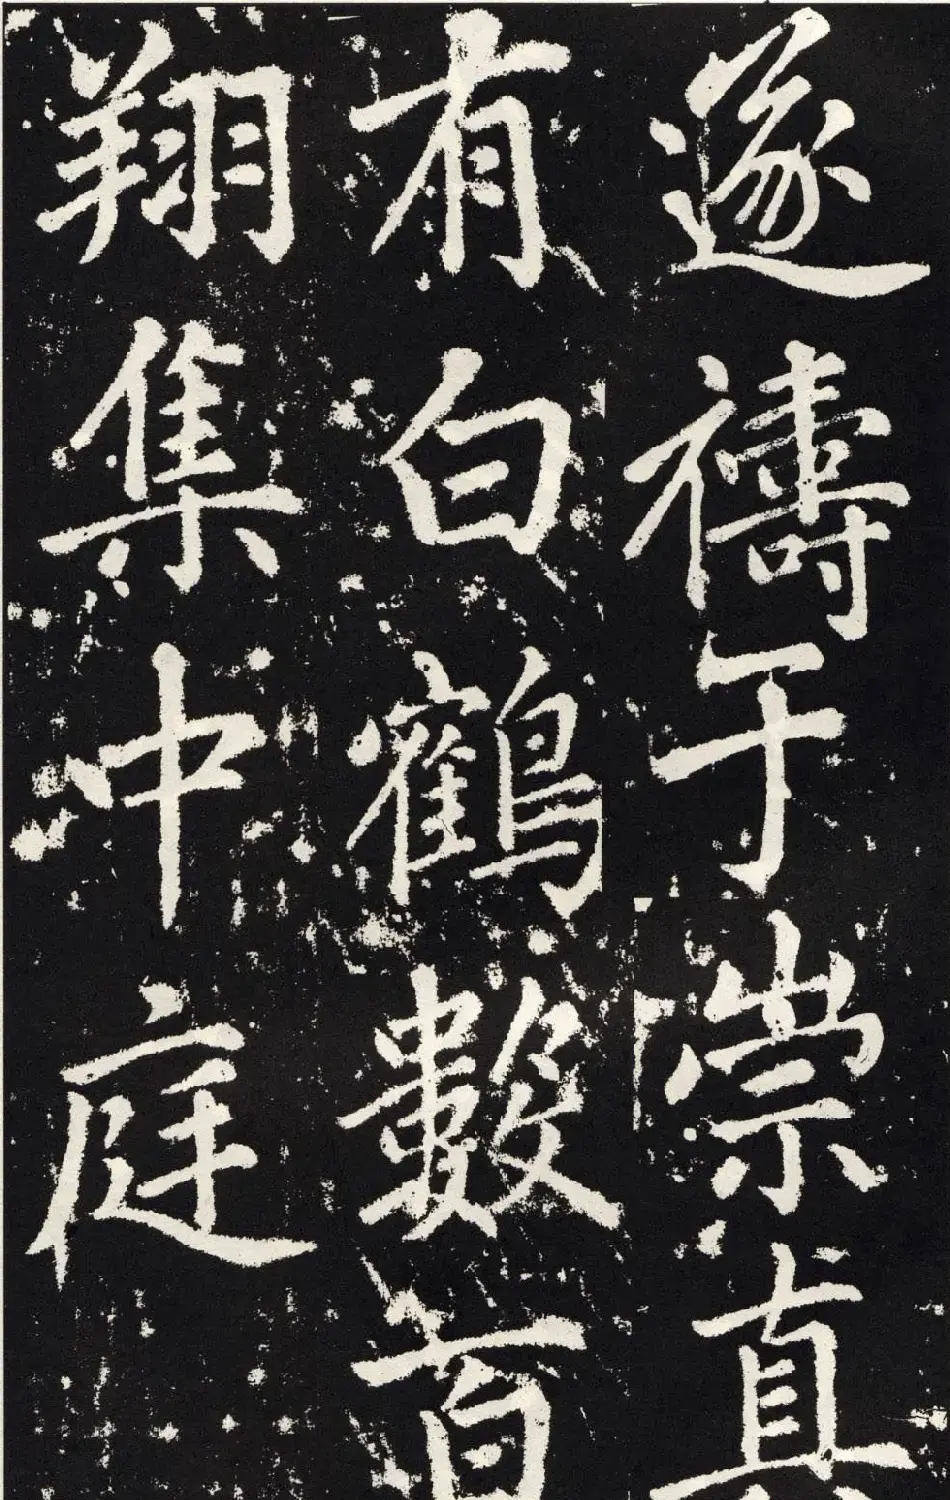 遂禱于崇真
有白鶴數百
翔集中庭